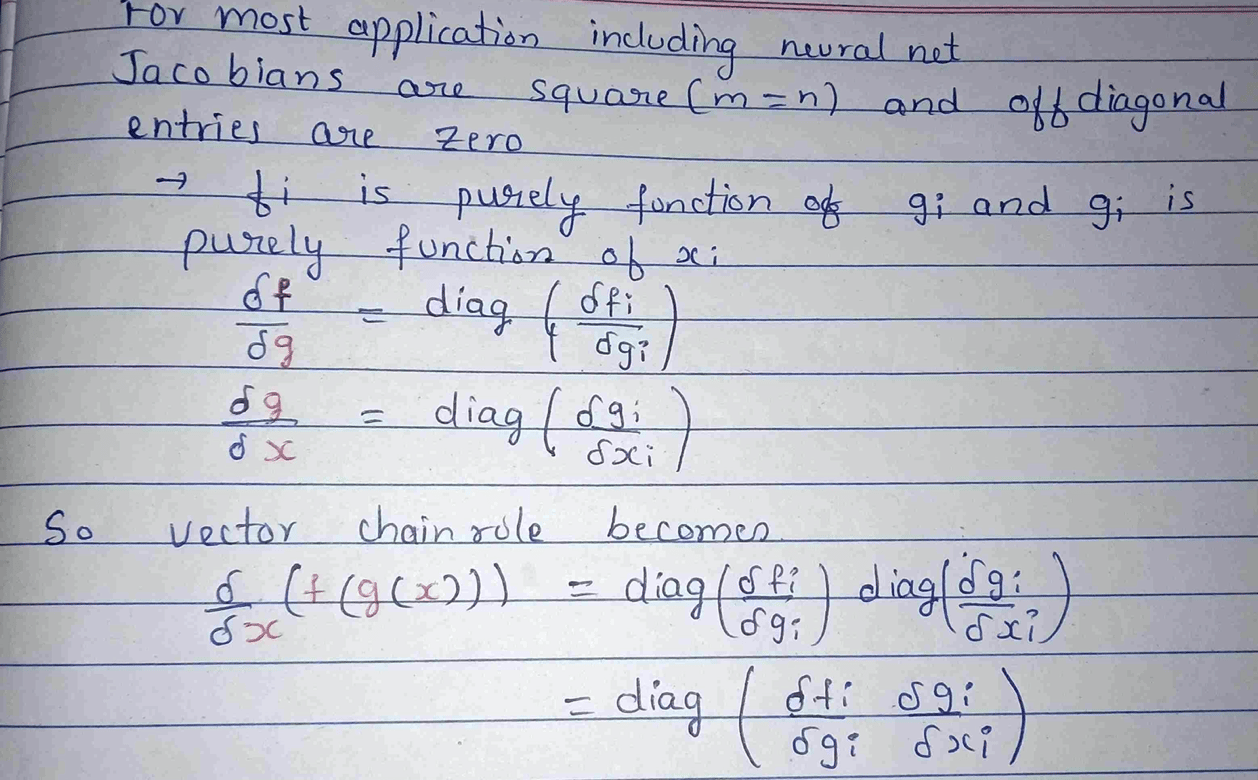 For most application including neural net
Jacobians are square (m=n) and off diagonal
entries are zero
→ fi is purely function of gi and gi is
purely function of xi
δf/δg = diag (δfi/δgi)
δg/δx = diag (δgi/δxi)
So vector chain rule becomes
δ/δx (f(g(x))) = diag(δfi/δgi) diag(δgi/δxi)
= diag (δfi/δgi δgi/δxi)